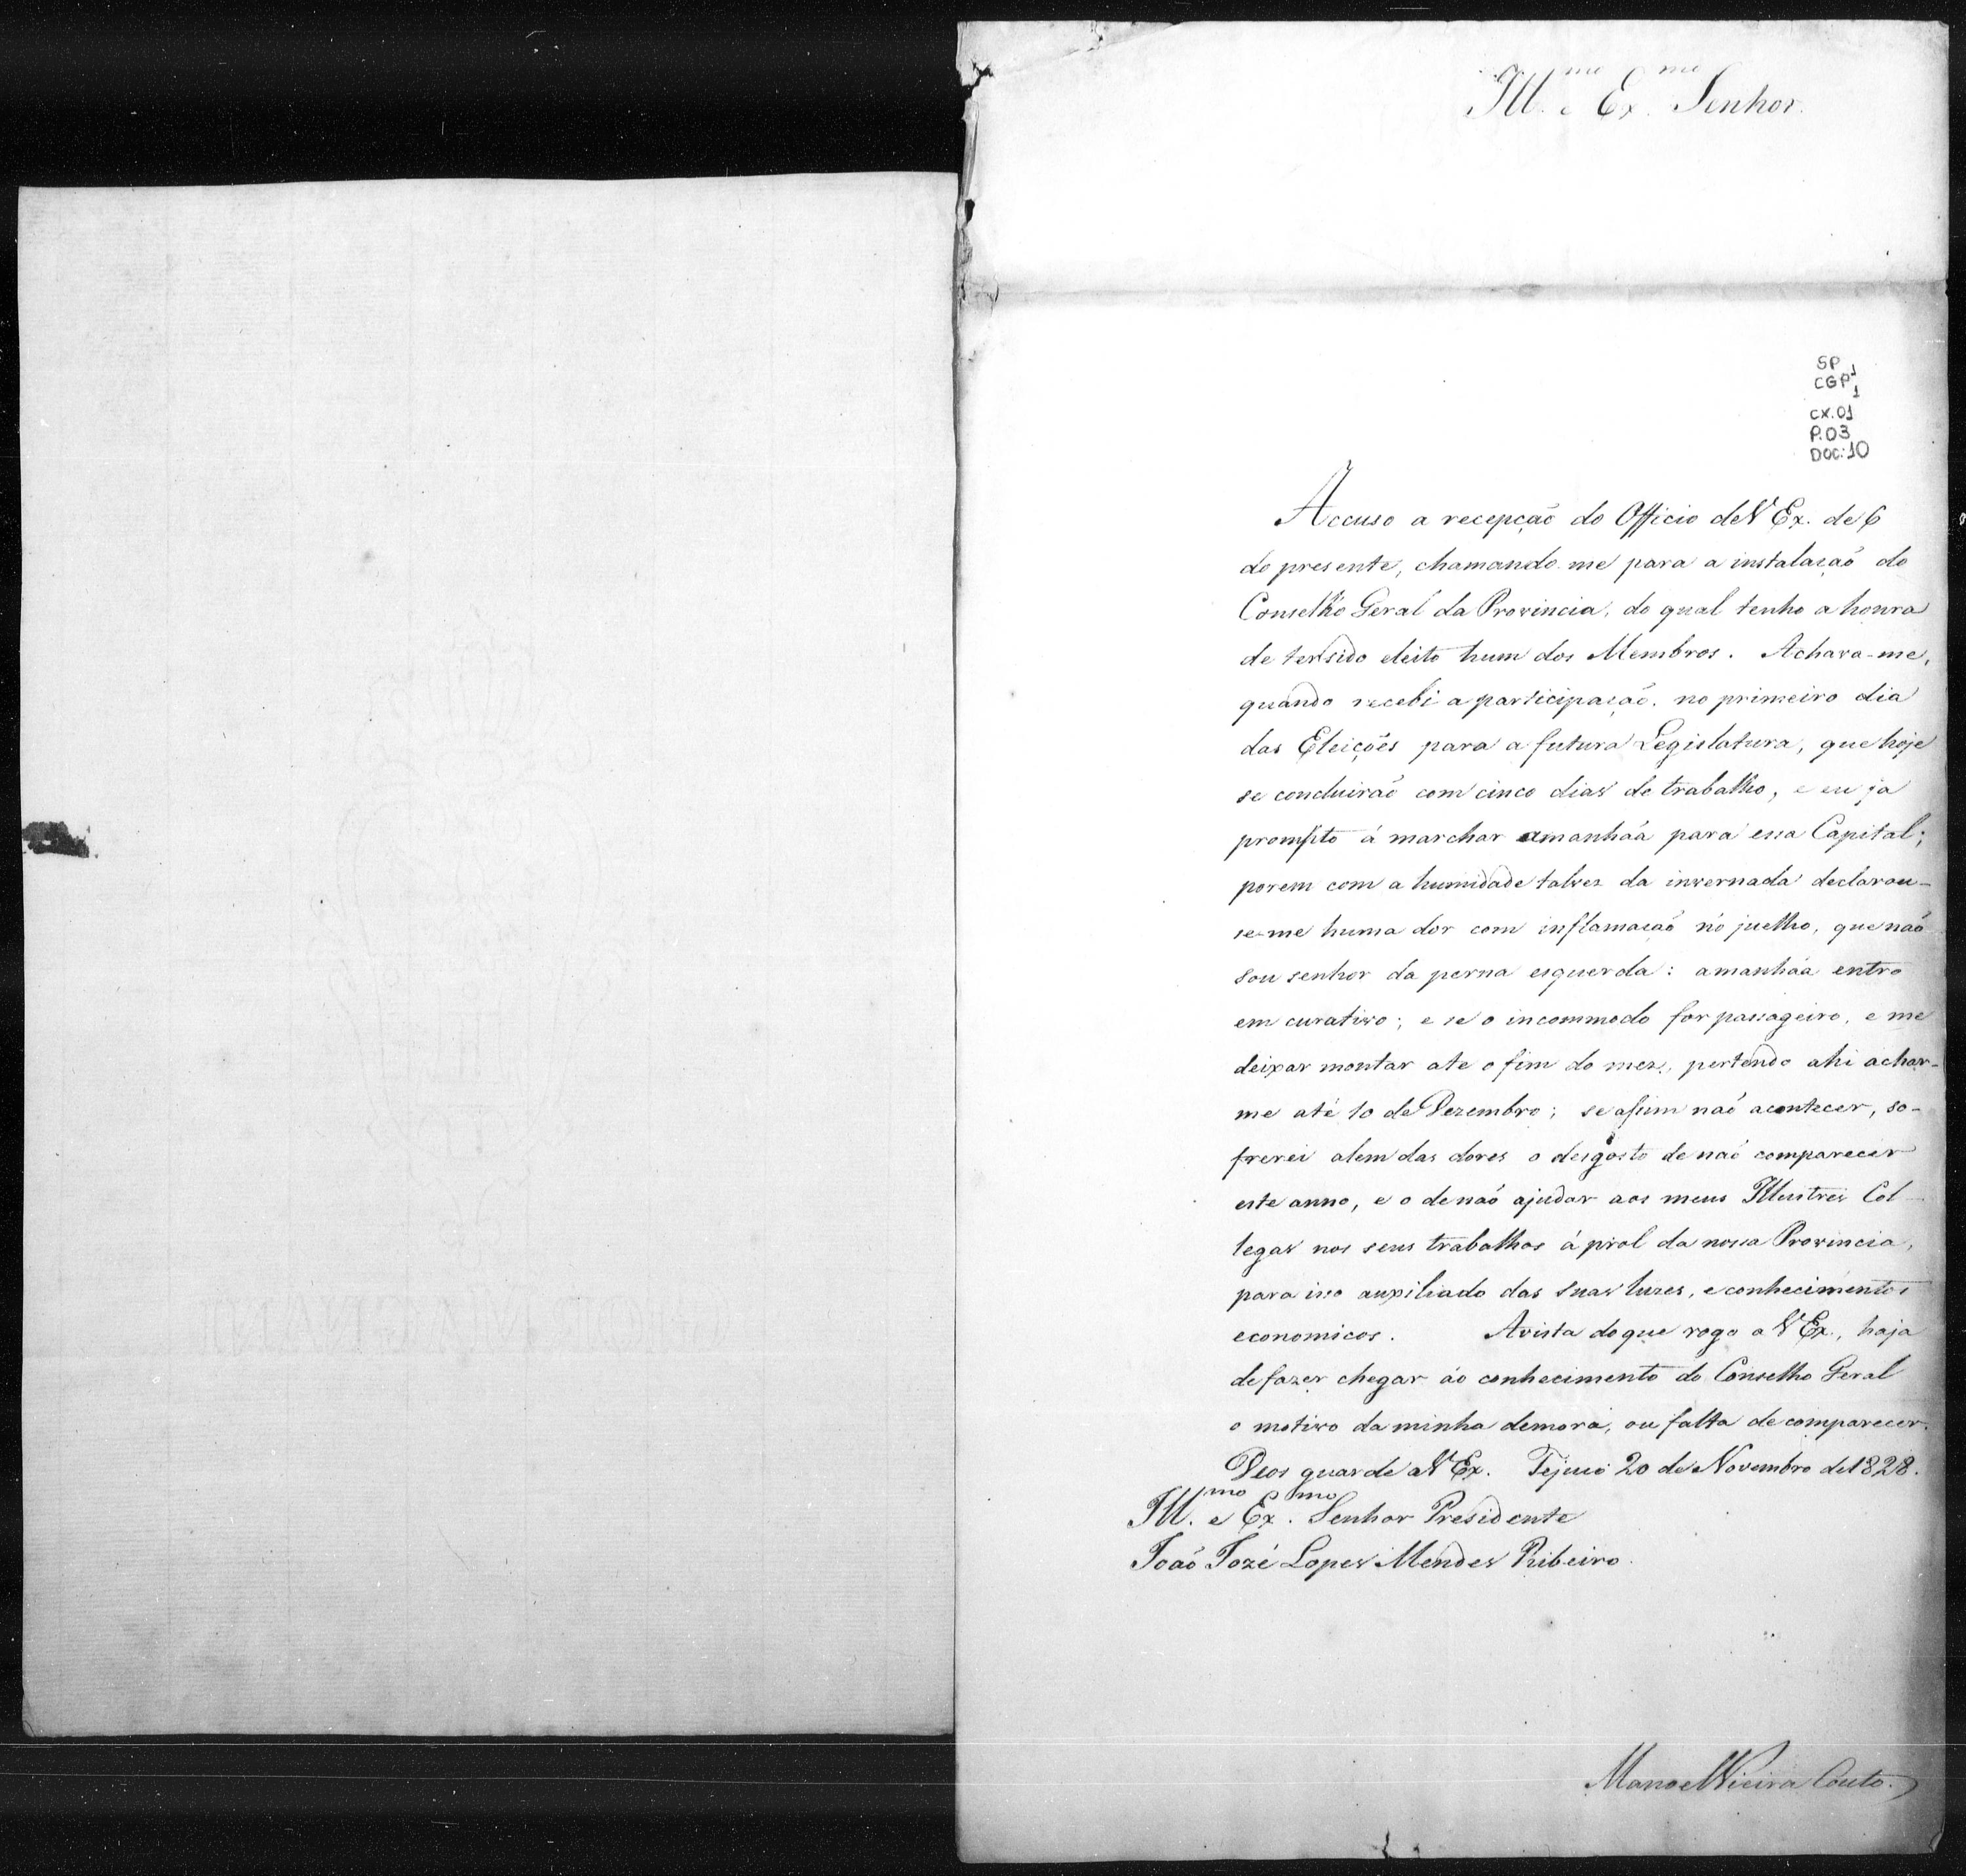 Ill.mo e Ex.mo Senhor.
SP 1
CGP 1
CX.01
P.03
DOC:10
Accuso a recepção do Officio de V Ex. de 6
do presente, chamando-me para a instalação do
Conselho Geral da Provincia, do qual tenho a honra
de ter sido eleito hum dos Membros. Achava-me,
quando recebi a participação, no primeiro dia
das Eleições para a futura Legislatura, que hoje
se concluirão com cinco dias de trabalho, e eu ja
prompto á marchar amanháa para essa Capital;
porem com a humidade talvez da invernada declarou-
se-me huma dor com inflamação no juelho, que não
sou senhor da perna esquerda: amanháa entro
em curativo; e se o incommodo for passageiro, e me
deixar montar ate o fim do mez, pertendo ahi achar-
me até 10 de Dezembro; se assim não acontecer, so-
frerei alem das dores o desgosto de não comparecer
este anno, e o de não ajudar aos meus Illustres Col-
legas nos seus trabalhos á prol da nossa Provincia,
para isso auxiliado das suas luzes, e conhecimentos
economicos. Avista do que rogo a V Ex., haja
de fazer chegar áo conhecimento do Conselho Geral
o motivo da minha demora, ou falta de comparecer.
Deos guarde a V Ex. Tejuco 20 de Novembro de 1828.
Ill.mo e Ex.mo Senhor Presidente
João Jozé Lopes Mendes Ribeiro.
Manoel Vieira Couto.